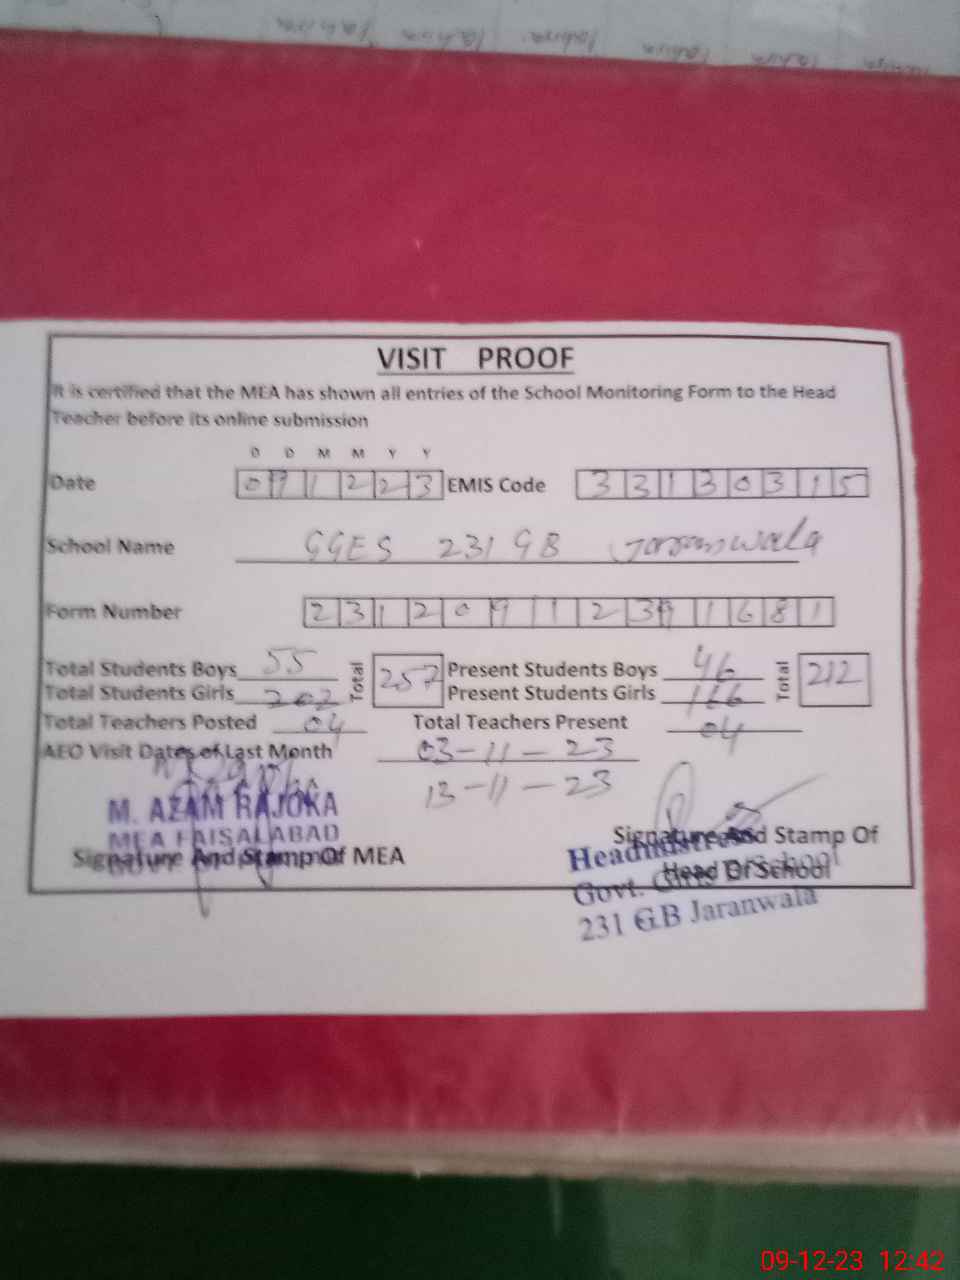 VISIT PROOF
It is certified that the MEA has shown all entries of the School Monitoring Form to the Head
Teacher before its online submission
D D M M Y Y
Date 091223 EMIS Code 33130315
School Name GGES 231 GB Jaranwala
Form Number 23120912391681
Total Students Boys 55 Total 257 Present Students Boys 46 Total 212
Total Students Girls 202 Present Students Girls 166
Total Teachers Posted 04 Total Teachers Present 04
AEO Visit Dates of Last Month 03-11-23
13-11-23
M. AZAM RAJOKA
MEA FAISALABAD
Signature And Stamp Of MEA
Signature And Stamp Of
Head Of School
Headmistress
Govt. Girls School
231 G.B Jaranwala
09-12-23 12:42